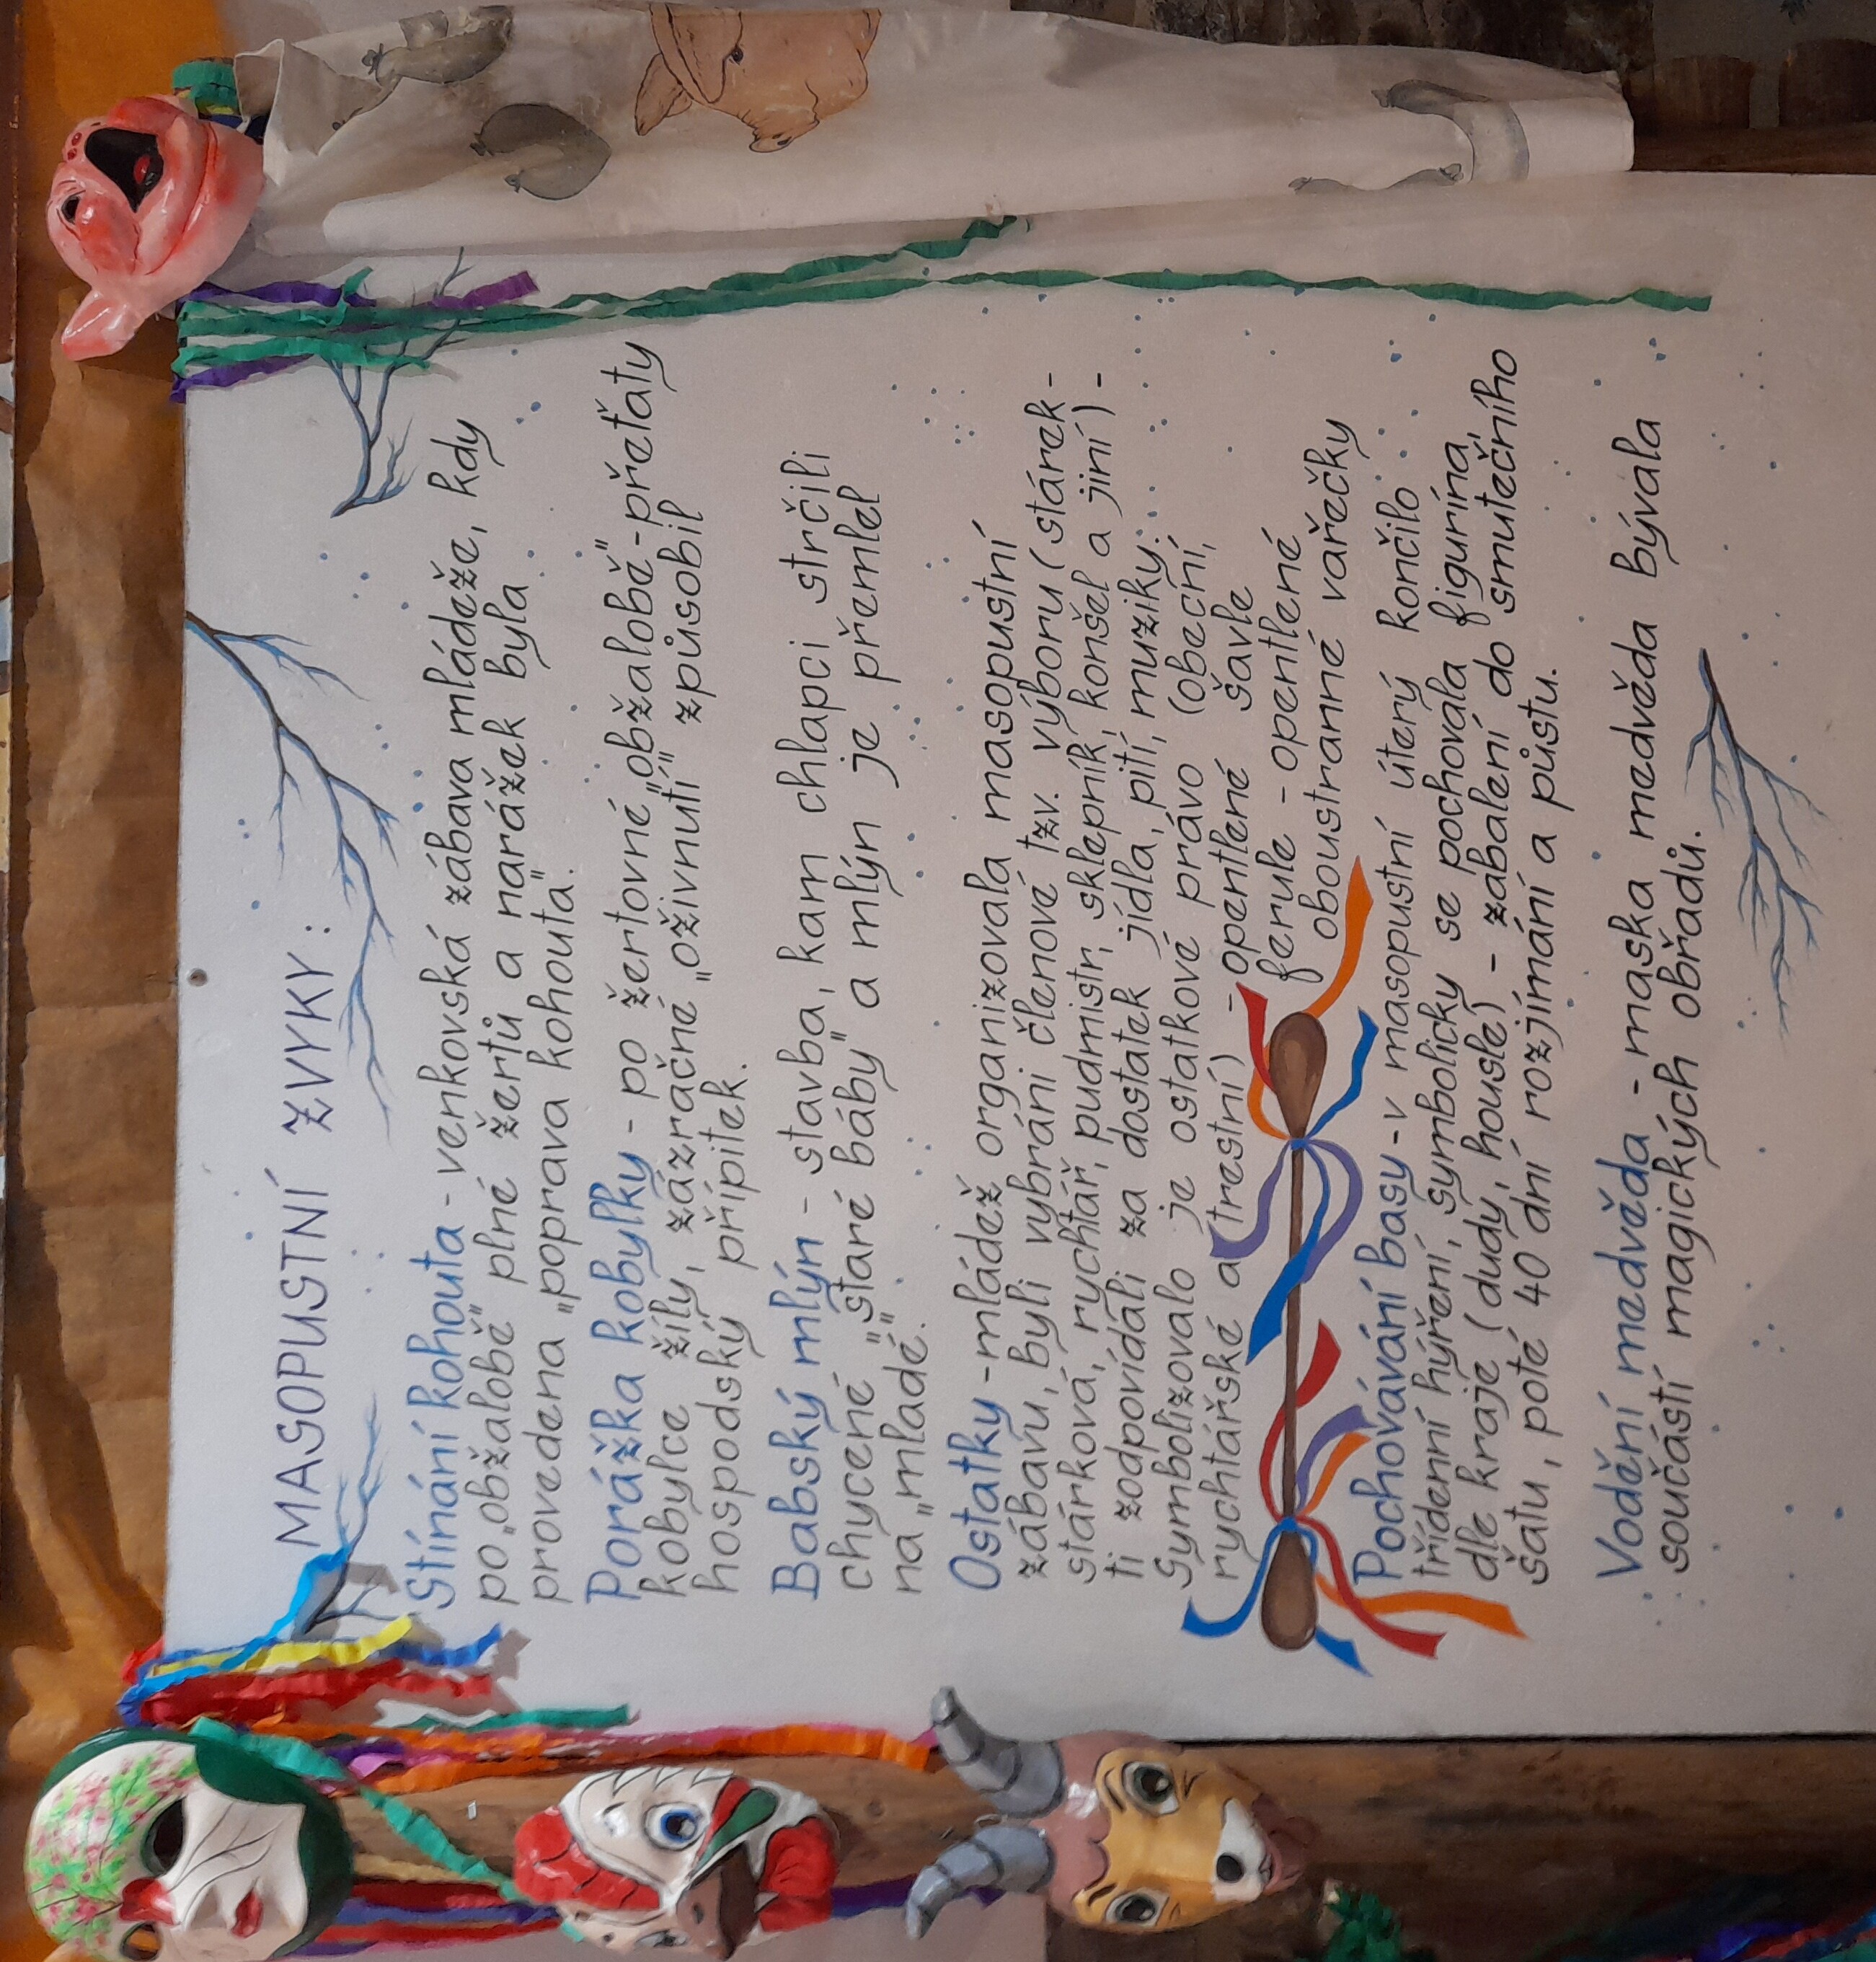 MASOPUSTNÍ ZVYKY:
Stínání kohouta - venkovská zábava mládeže, kdy
po „obžalobě" plné žertů a narážek byla
provedena „poprava kohouta".
Porážka kobylky - po žertovné „obžalobě" - přeťaty
kobylce žíly, zázračné „oživnutí" způsobil
hospodský přípitek.
Babský mlýn - stavba, kam chlapci strčili
chycené „staré báby" a mlýn je přemlel
na „mladé".
Ostatky - mládež organizovala masopustní
zábavu, byli vybráni členové tzv. výboru (stárek -
stárková, rychtář, pudmistr, sklepník, konšel a jiní) -
ti zodpovídali za dostatek jídla, pití, muziky.
Symbolizovalo je ostatkové právo (obecní,
rychtářské a trestní) - opentlené šavle
ferule - opentlené
oboustranné vařečky
Pochovávání basy - v masopustní úterý končilo
třídenní hýření, symbolicky se pochovala figurína,
dle kraje (dudy, housle) - zabalení do smutečního
šatu, poté 40 dní rozjímání a půstu.
Vodění medvěda - maska medvěda bývala
součástí magických obřadů.